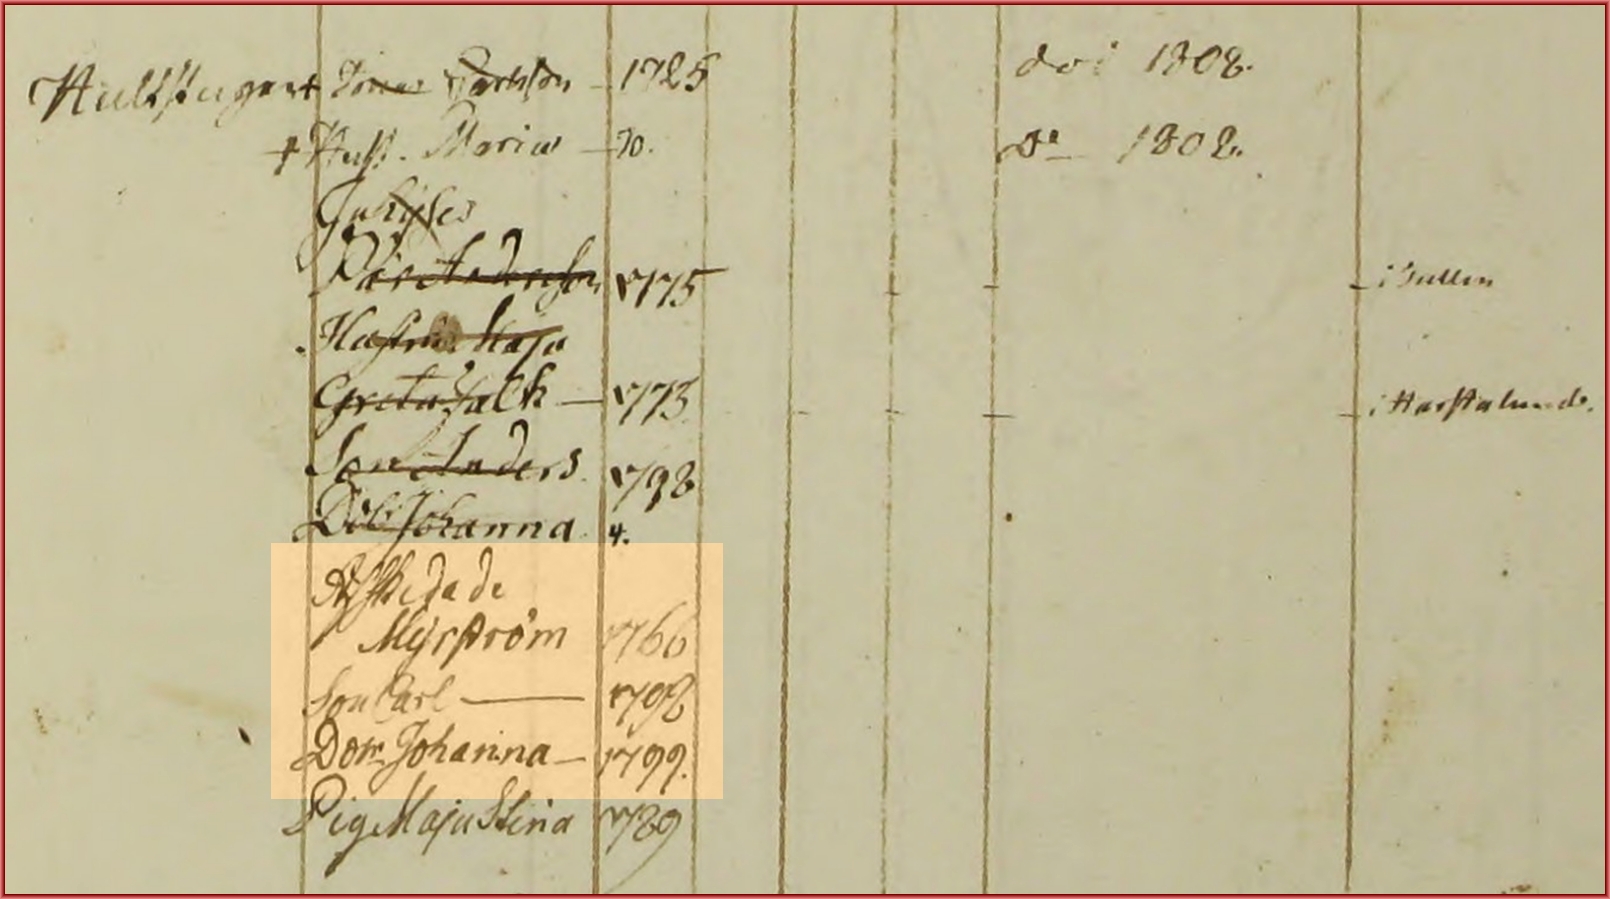 Hultstugan + Jonas 1725 döi 1808.
+ Hust. Maria — 30. Do 1802.
Inhyses
Pär Andersson 1775 i Gullin
Hustru Maja
Greta Falk — 1773 i Harstalunda.
Son Anders 1798
Dôt Johanna 4.
Afskedade
Myrström 1766
Son Carl — 1798
Dotr Johanna — 1799.
Pig Maja Stina 1789